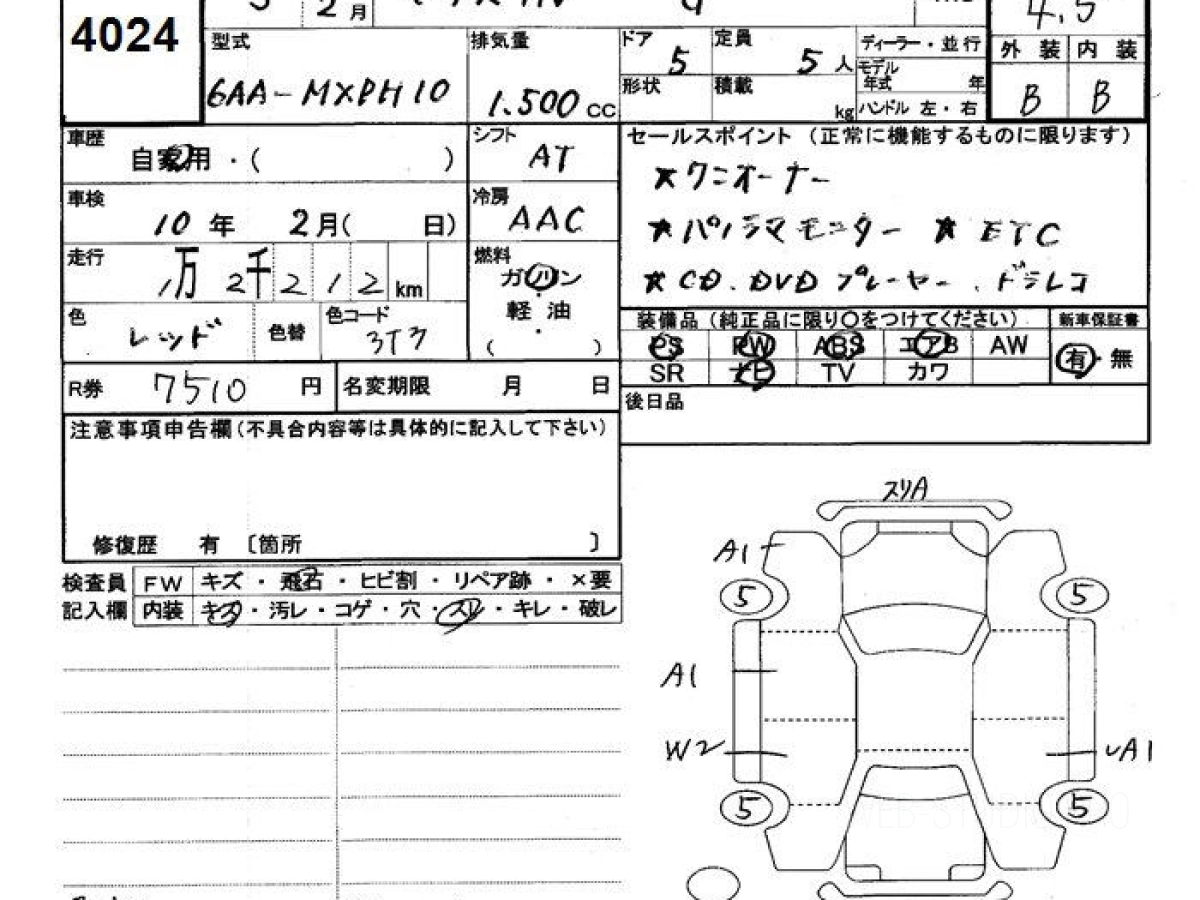 4024
2月
型式 6AA-MXPH10
排気量 1.500 CC
ドア 5
形状
定員 5 人
積載 kg
ディーラー・並行
モデル年式 年
ハンドル 左・右
4.5
外装 内装
B B
車歴 自家用・( )
シフト AT
車検 10年 2月( 日)
冷房 AAC
走行 1万2千212km
燃料 ガソリン
軽油
・
( )
色 レッド 色替 色コード 3T3
R券 7510 円 名変期限 月 日
セールスポイント (正常に機能するものに限ります)
★ワンオーナー
★パノラマモニター ★ETC
★CD.DVDプレーヤー、ドラレコ
装備品(純正品に限り○をつけてください) 新車保証書
PS PW ABS エアB AW 有・無
SR ナビ TV カワ
後日品
注意事項申告欄(不具合内容等は具体的に記入して下さい)
修復歴 有 〔箇所 〕
検査員 FW キズ・飛石・ヒビ割・リペア跡・×要
記入欄 内装 キズ・汚レ・コゲ・穴・スレ・キレ・破レ
スリA
A1
5 5
A1
W2 A1
5 5